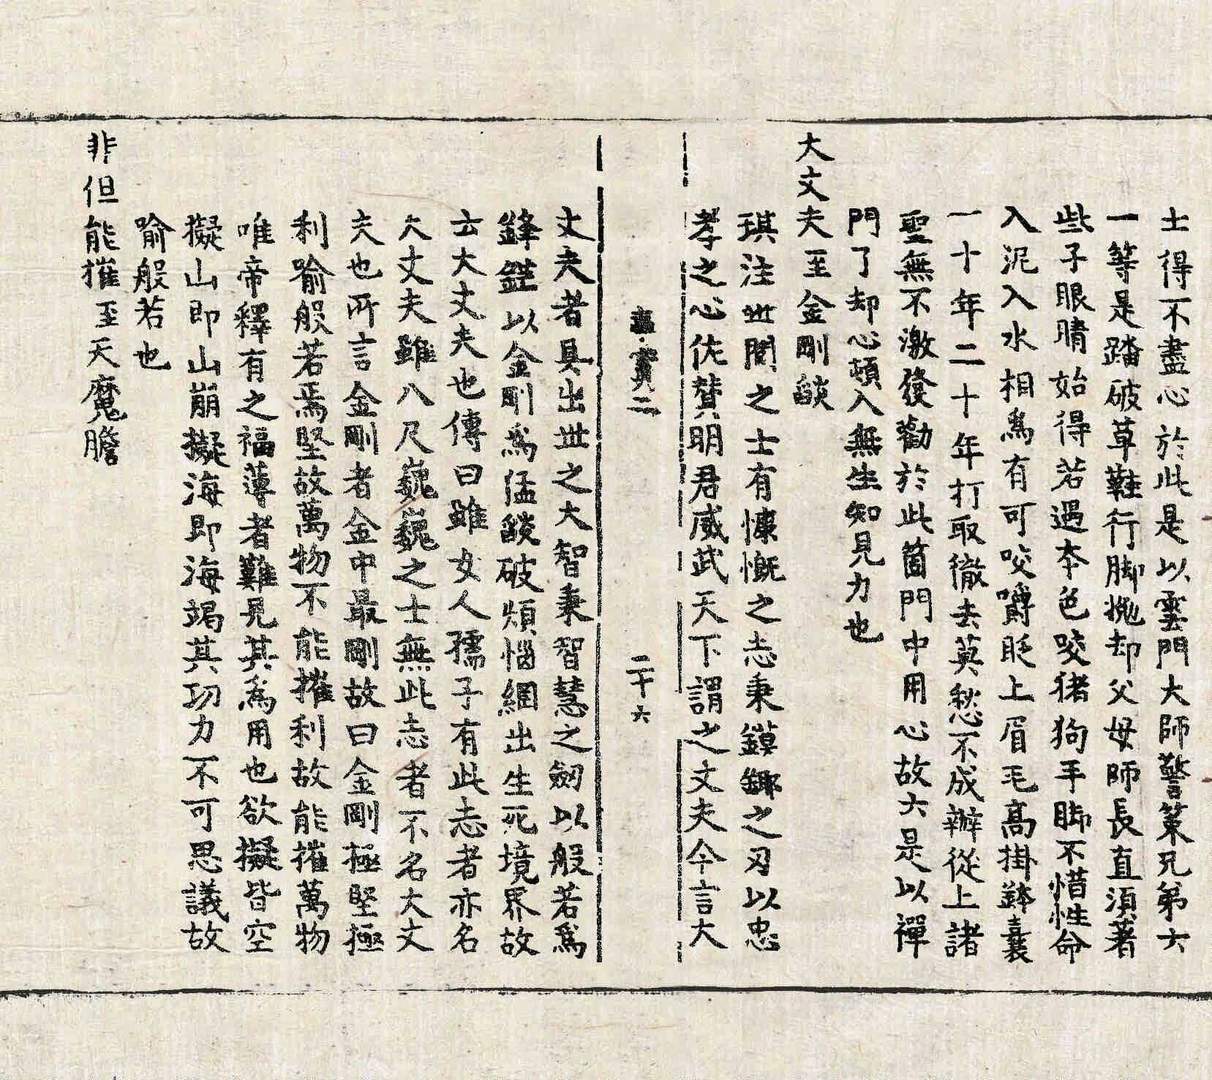 士得不盡心於此是以雲門大師警策兄弟云
一等是踏破草鞋行脚抛却父母師長直須著
些子眼睛始得若遇本色咬猪狗手脚不惜性命
入泥入水相爲有可咬嚼眨上眉毛高掛鉢囊
一十年二十年打取徹去莫愁不成辦從上諸
聖無不激發勸於此箇門中用心故云是以禪
門了却心頓入無生知見力也
大丈夫至金剛燄
琪注世間之士有慷慨之志秉鏌鎁之刃以忠
孝之心佐賛明君威武天下謂之丈夫今言大
二十六
丈夫者具出世之大智秉智慧之劒以般若爲
鋒鋩以金剛爲猛燄破煩惱網出生死境界故
云大丈夫也傳曰雖女人孺子有此志者亦名
大丈夫雖八尺巍巍之士無此志者不名大丈
夫也所言金剛者金中最剛故曰金剛極堅極
利喻般若焉堅故萬物不能摧利故能摧萬物
唯帝釋有之福薄者難見其爲用也欲擬皆空
擬山即山崩擬海即海竭其功力不可思議故
喻般若也
非但能摧至天魔膽